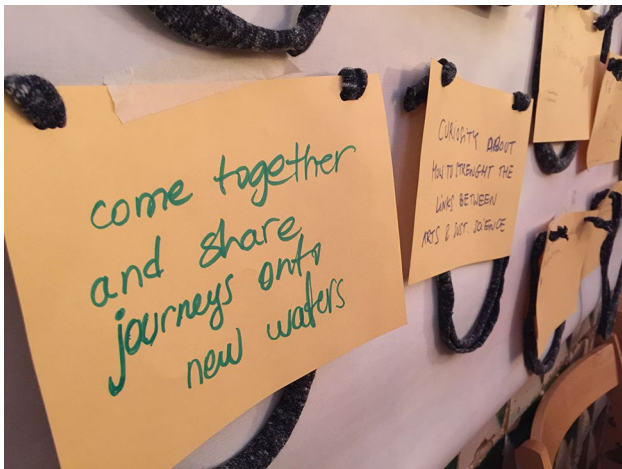 come together
and share
journeys onto
new waters
CURIOSITY ABOUT
HOW TO STRENGHT THE
LINKS BETWEEN
ARTS & SUST. SCIENCE